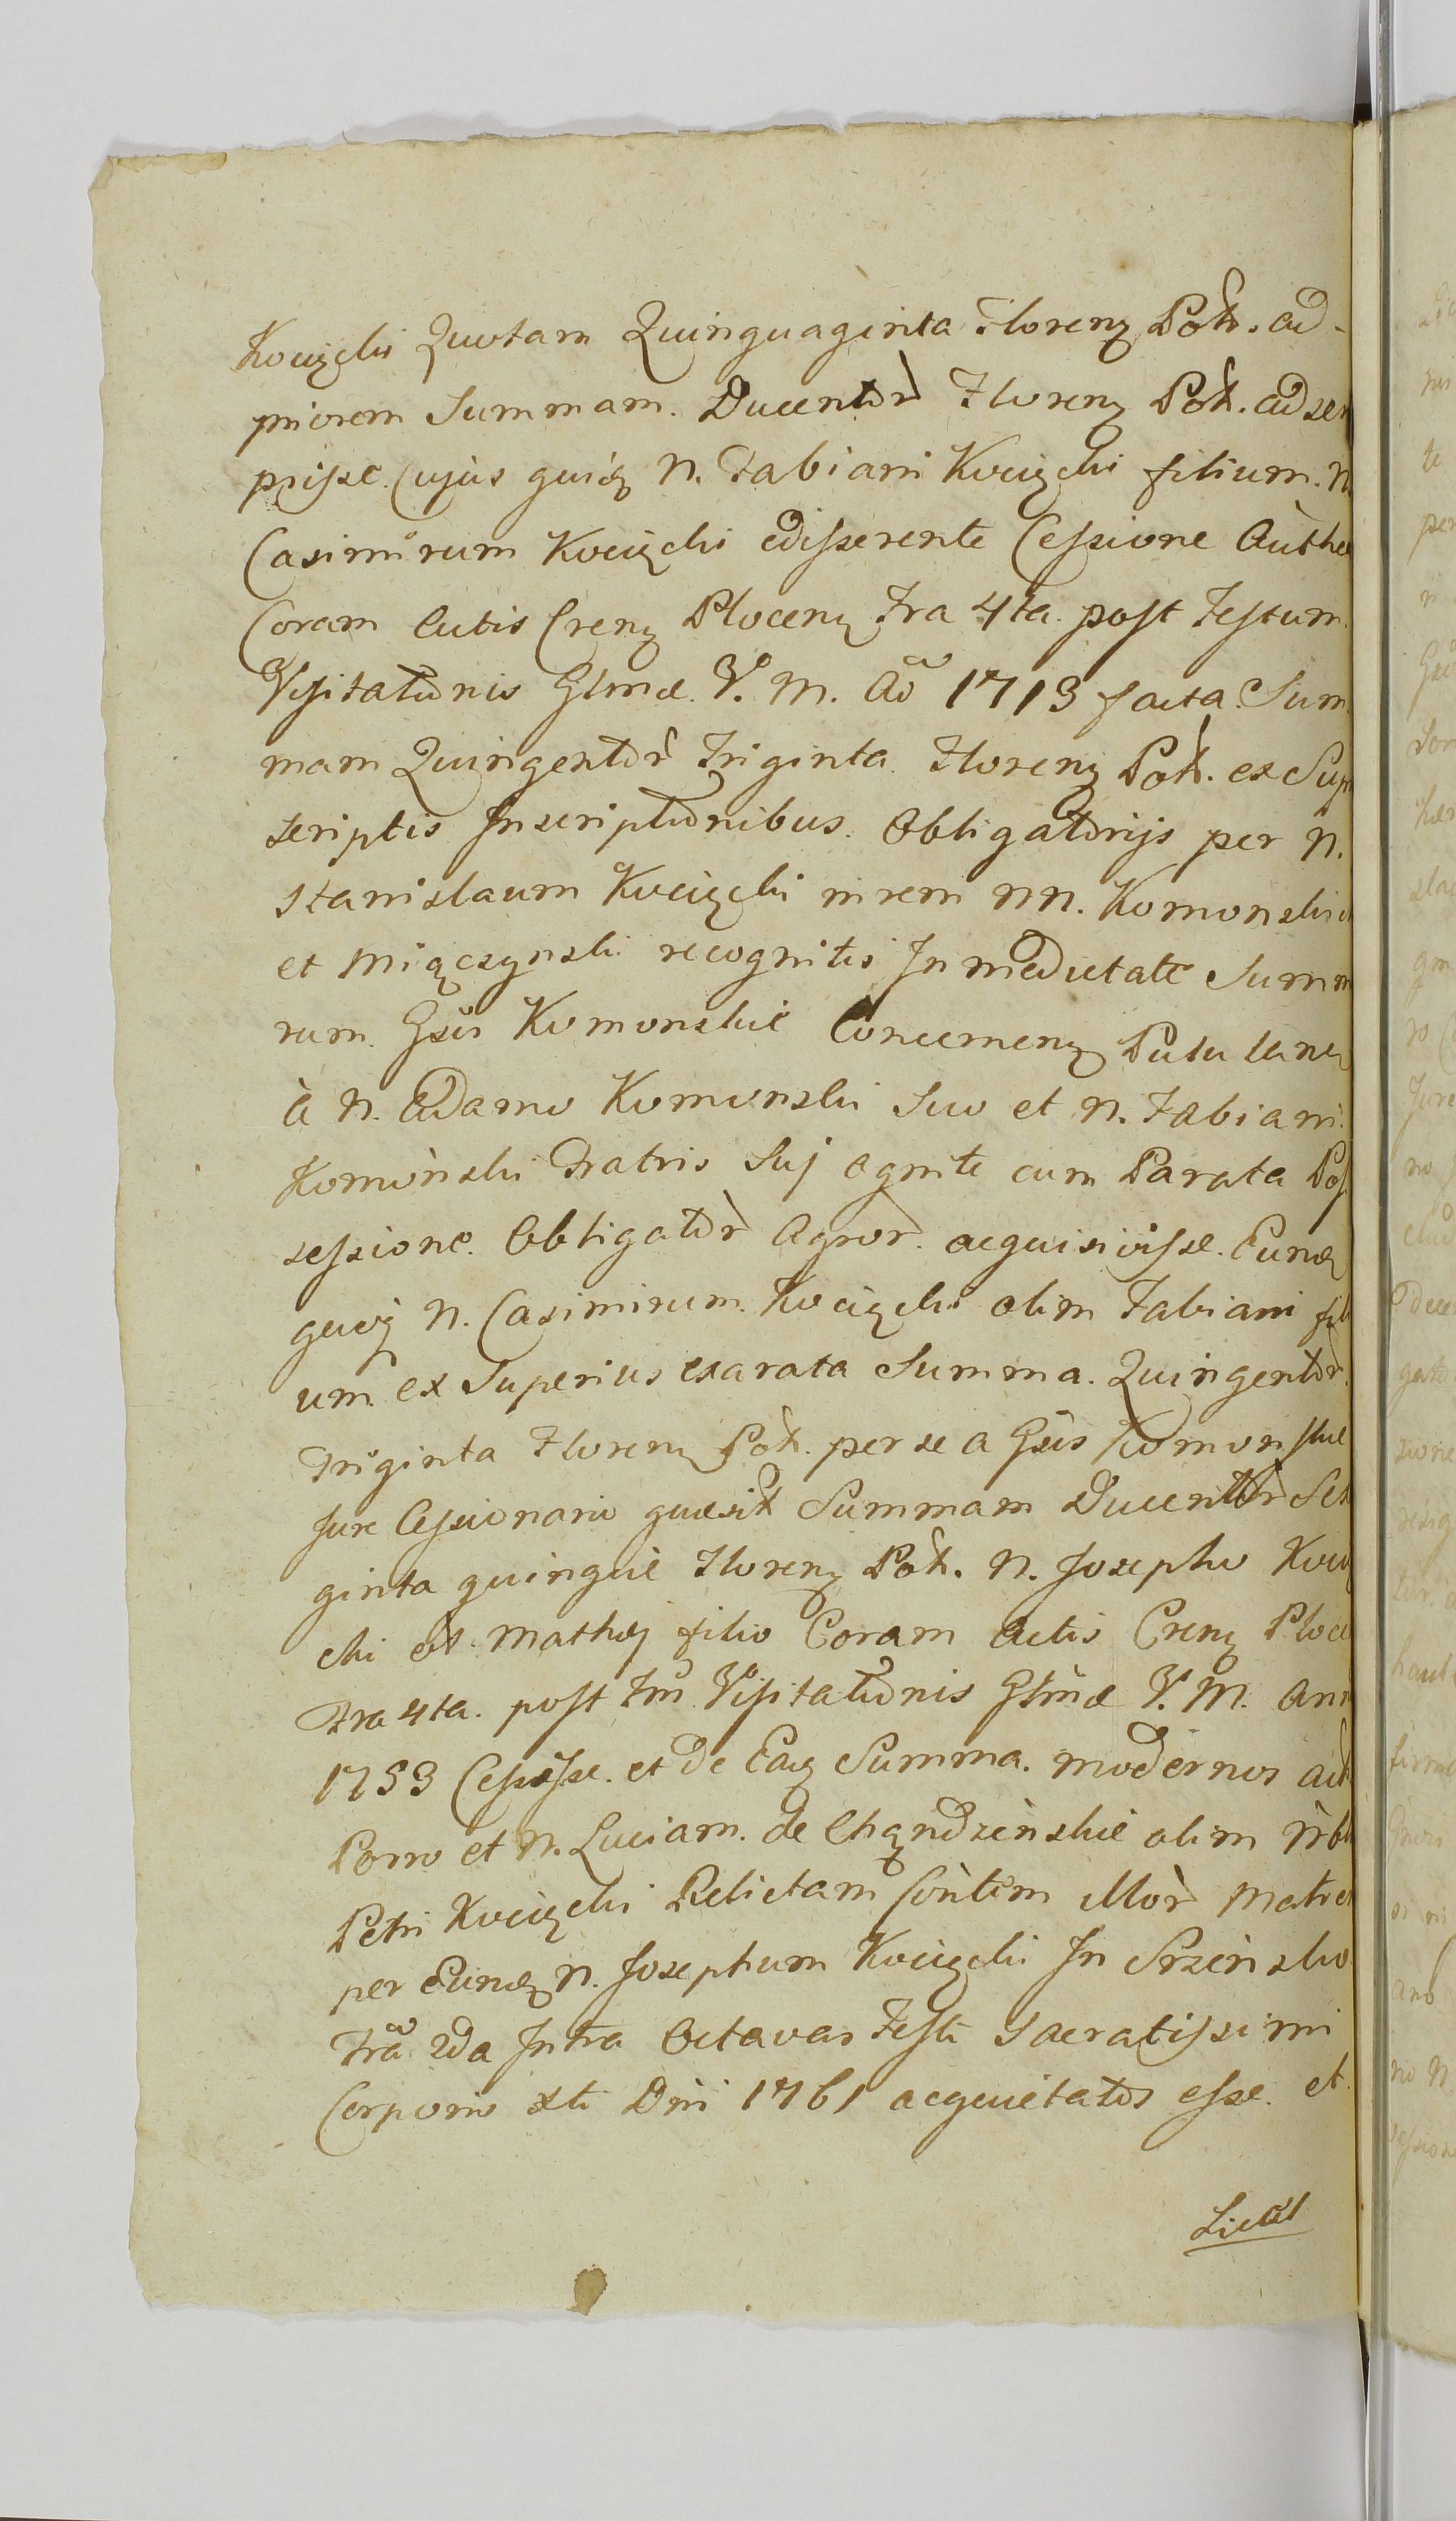 Kocięcki Quotam Quinquaginta Floreny Poh. ad-
priorem Summam. Ducentor Floreny Poh. adscri
psisse. Cujus quidẽ N. Fabiani Kocięcki filium. N.
Casimirum Kocięcki edisserente Cessione Authen
Coram Actis Creny Ploceny Fra 4ta. post Festum.
Visitationis Glmæ. V. M. Aõ 1713 facta. Sum
mam Quingentor Triginta. Floreny Poh. ex Sup
scriptis Inscriptionibus. Obligatorijs per N.
Stanislaum Kocięcki in rem NN. Komonskie
et Miączynski recognitis In medietate Summ
rum. Gsũs Komonskie Concerneny
à N. Adamo Komonski Suo et N. Fabiani.
Komonski Fratris Suj agnte cum Parata Pos
sessione. Obligator Agror. acquisivisse. Eundẽ
quoq N. Casimirum. Kocięcki olim Fabiani fili
um. ex Superius exarata Summa. Quingentor.
Triginta Floreny Poh. per se a Gsũs Komonskie
Jure Cessionario quæsit Summam Ducentor Sexa
ginta quinque Floreny Poh. N. Josepho Kocię
cki ol. Mathej filio Coram Actis Creny Ploce
Fra 4ta. post Fm̃ Visitationis Glmæ V. M. Ann
1753 Cessisse. et de Eaq Summa. modernos act
Porro et N. Luciam. de Chądzeńskie olim Nrbl
Petri Kocięcki Relictam Contem Mor Matre
per Eundẽ N. Josephum Kocięcki In Srzeńsko
Frã 2da Intra Octavas Festi Sacratissimi
Corporis Xti Dni 1761 acquietatos esse. et
Licet